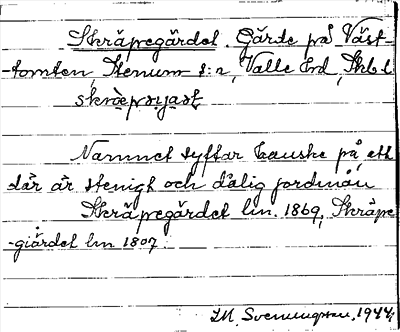 Skräpegärdet. Gärde på Väst-
-tomten Stenum 1:2, Valle hd, Skbl
Namnet syftar kanske på att
där är stenigt och dålig jordmån
Skräpegärdet lm. 1869, Skräpe
-giärdet lm 1807.
1944